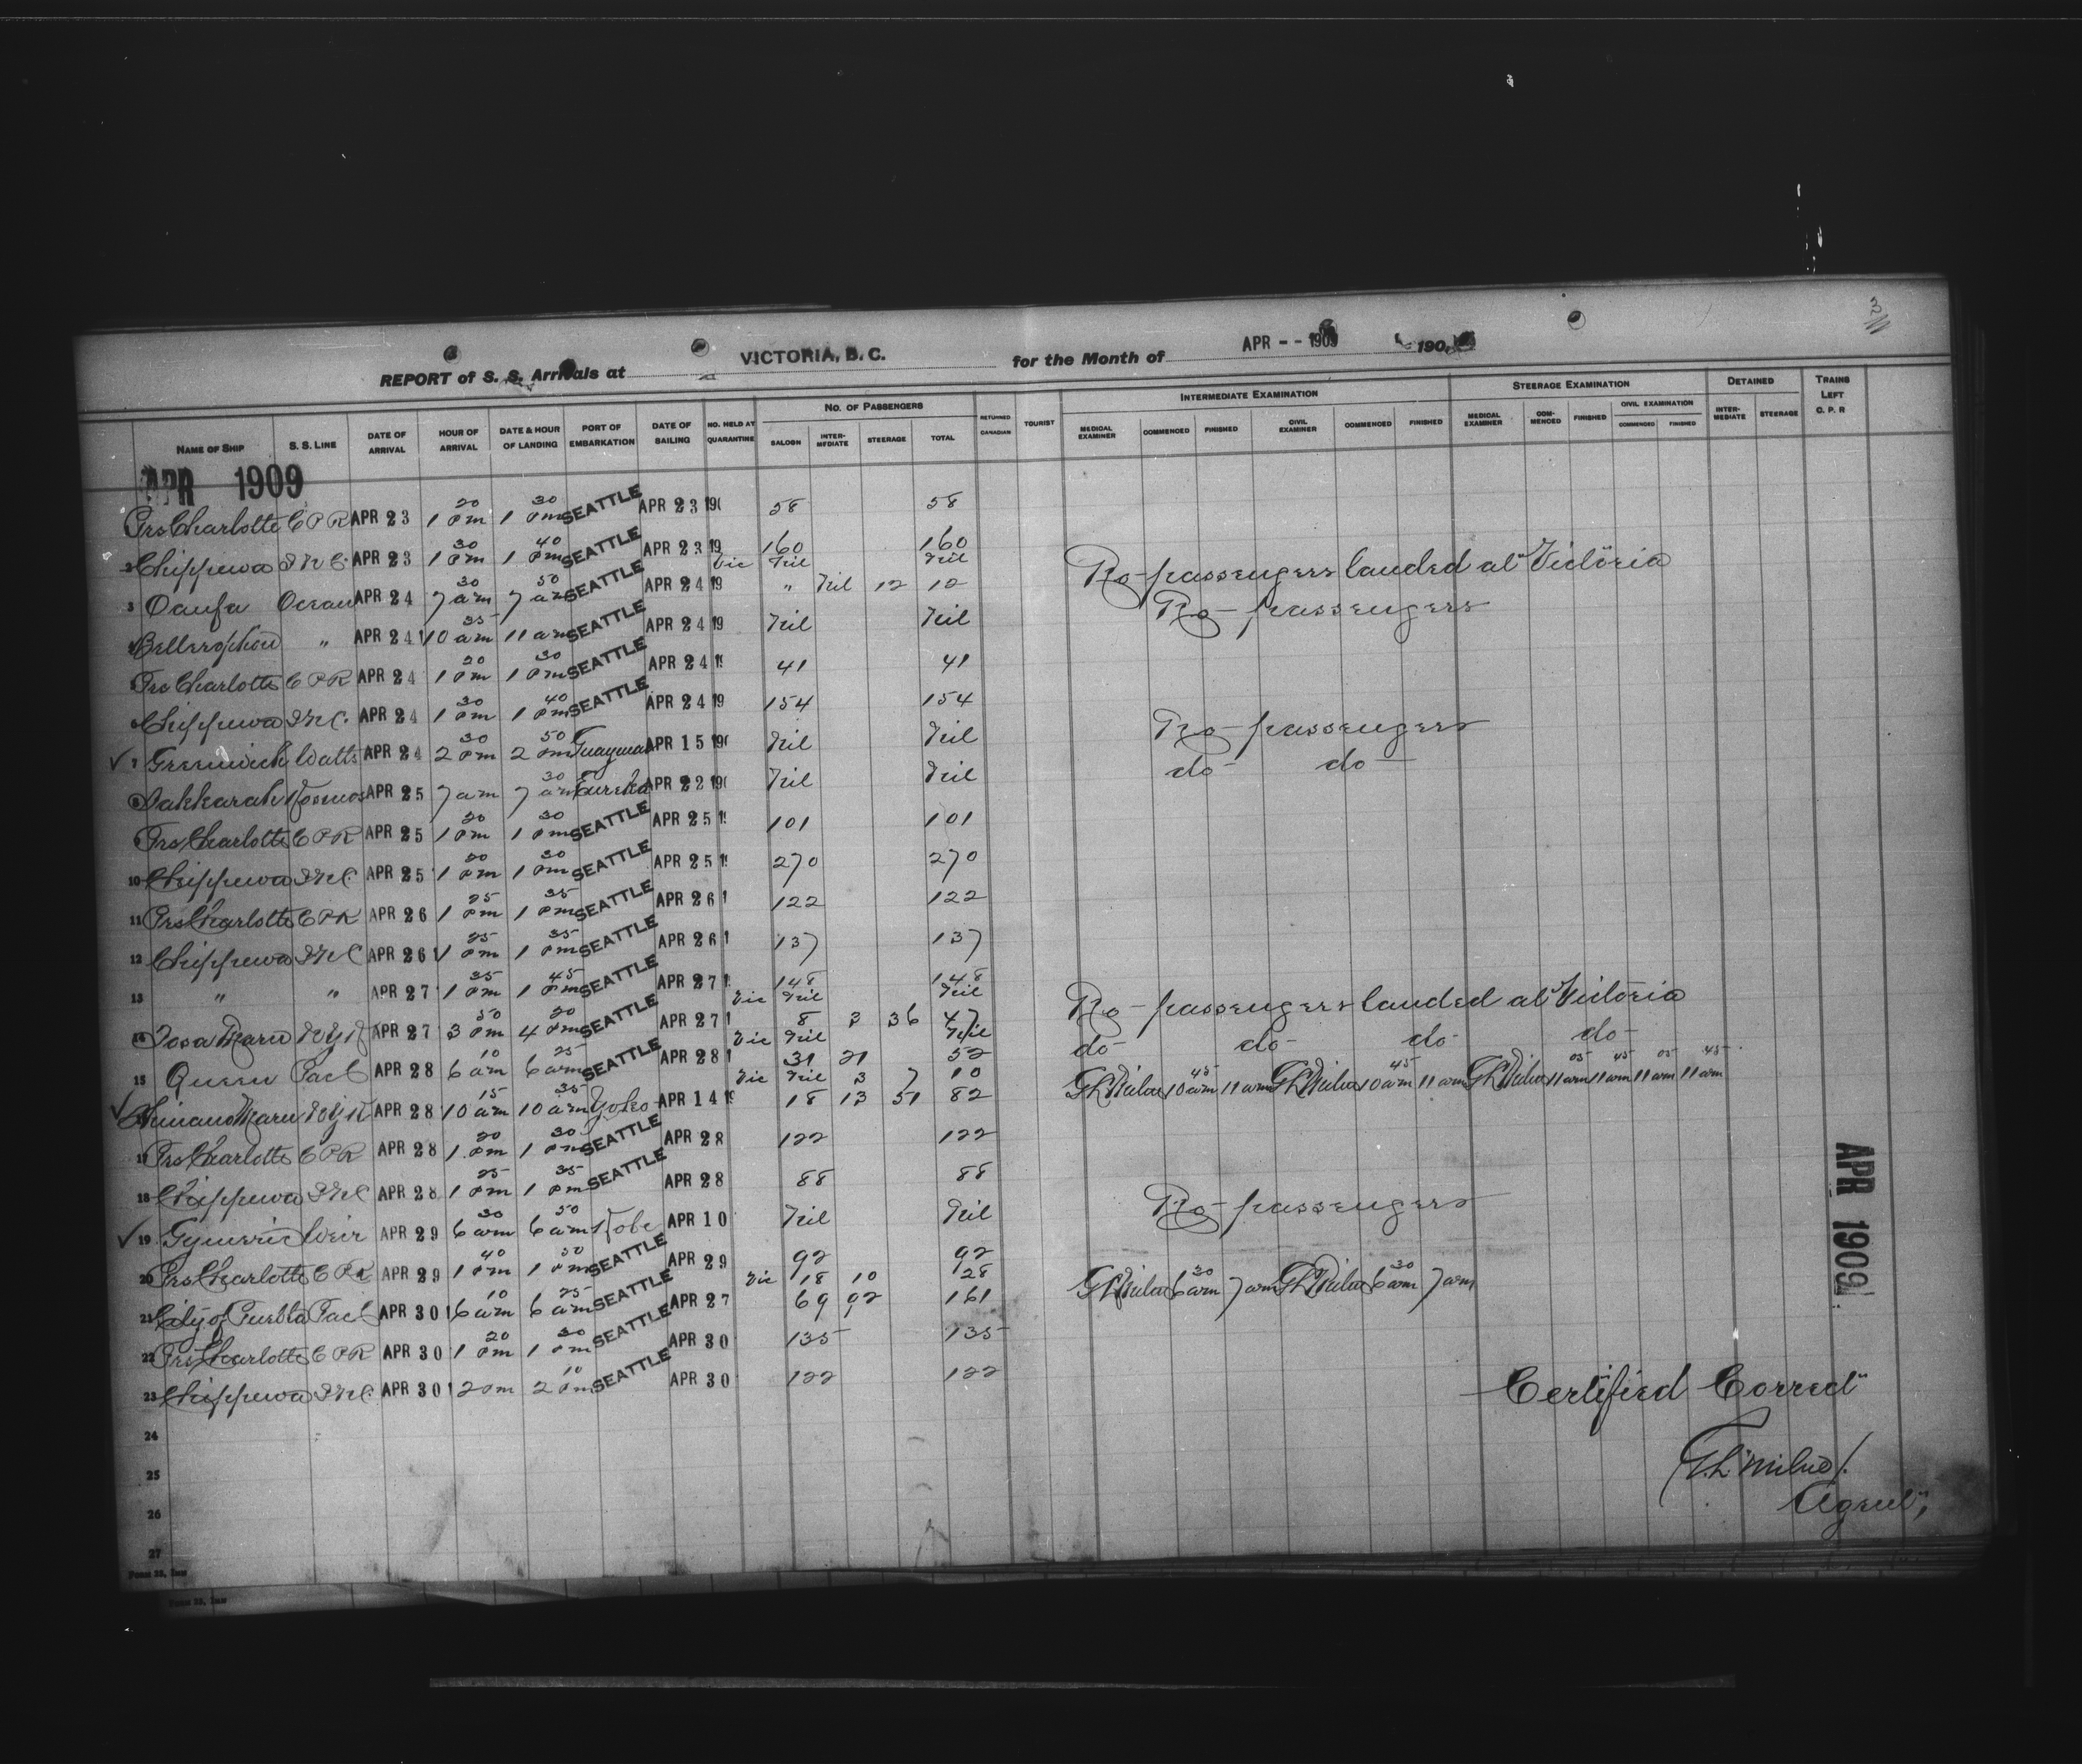 REPORT of S. S. Arrivals at VICTORIA, B. C. for the Month of APR - - 1909 190
NAME OF SHIP S. S. LINE DATE OF ARRIVAL HOUR OF ARRIVAL DATE & HOUR OF LANDING PORT OF EMBARKATION DATE OF SAILING NO. HELD AT QUARANTINE NO. OF PASSENGERS SALOON INTER-MEDIATE STEERAGE TOTAL RETURNED CANADIAN TOURIST INTERMEDIATE EXAMINATION MEDICAL EXAMINER COMMENCED FINISHED CIVIL EXAMINER COMMENCED FINISHED STEERAGE EXAMINATION MEDICAL EXAMINER COM-MENCED FINISHED CIVIL EXAMINATION COMMENCED FINISHED DETAINED INTER-MEDIATE STEERAGE TRAINS LEFT C. P. R
APR 1909
Prs Charlotte C P R APR 23 1 20 pm 1 30 pm SEATTLE APR 23 190 58 58
2 Chippewa I N C. APR 23 1 30 pm 1 40 pm SEATTLE APR 23 19 160 160
Vic Nil Nil No passengers landed at Victoria
3 Oanfa Ocean APR 24 7 30 am 7 50 am SEATTLE APR 24 19 " Nil 12 12
4 Bellerophon " APR 24 10 35 am 11 am SEATTLE APR 24 19 Nil Nil No passengers
Prs Charlotte C P R APR 24 1 20 pm 1 30 pm SEATTLE APR 24 41 41
6 Chippewa I N C. APR 24 1 30 pm 1 40 pm SEATTLE APR 24 19 154 154
7 Greenwich Watts APR 24 2 30 pm 2 50 pm Guaymas APR 15 190 Nil Nil No passengers
8 Sakkarah Kosmos APR 25 7 am 7 30 am Eureka APR 22 190 Nil Nil do do
Prs Charlotte C P R APR 25 1 20 pm 1 30 pm SEATTLE APR 25 101 101
10 Chippewa I N C. APR 25 1 20 pm 1 30 pm SEATTLE APR 25 270 270
11 Prs Charlotte C P R APR 26 1 25 pm 1 35 pm SEATTLE APR 26 122 122
12 Chippewa I N C APR 26 1 25 pm 1 35 pm SEATTLE APR 26 137 137
13 " " APR 27 1 35 pm 1 45 pm SEATTLE APR 27 148 148
Vic Nil Nil No passengers landed at Victoria
14 Tosa Maru N Y K APR 27 3 50 pm 4 20 pm SEATTLE APR 27 8 3 36 47
Vic Nil Nil do do do do
15 Queen Pacf APR 28 6 10 am 6 25 am SEATTLE APR 28 31 21 52
Vic Nil 3 7 10 G L Milne 10 45 am 11 am G L Milne 10 45 am 11 am G L Milne 11 05 am 11 45 am 11 05 am 11 45 am
Shinano Maru N Y K APR 28 10 15 am 10 35 am Yoko APR 14 18 13 51 82
17 Prs Charlotte C P R APR 28 1 20 pm 1 30 pm SEATTLE APR 28 122 122
18 Chippewa I N C APR 28 1 25 pm 1 35 pm SEATTLE APR 28 88 88
19 Gymeric Weir APR 29 6 30 am 6 50 am Kobe APR 10 Nil Nil No passengers
20 Prs Charlotte C P R APR 29 1 40 pm 1 50 pm SEATTLE APR 29 92 92
Vic 18 10 28 G L Milne 6 30 am 7 am G L Milne 6 30 am 7 am
21 City of Puebla Pacf APR 30 6 10 am 6 25 am SEATTLE APR 27 69 92 161
22 Prs Charlotte C P R APR 30 1 20 pm 1 30 pm SEATTLE APR 30 135 135
23 Chippewa I N C. APR 30 2 pm 2 10 pm SEATTLE APR 30 122 122
24
25
26
27
Certified Correct
G. L. Milne
Agent,
APR 1909
Form 35, Imm
Form 35, Imm